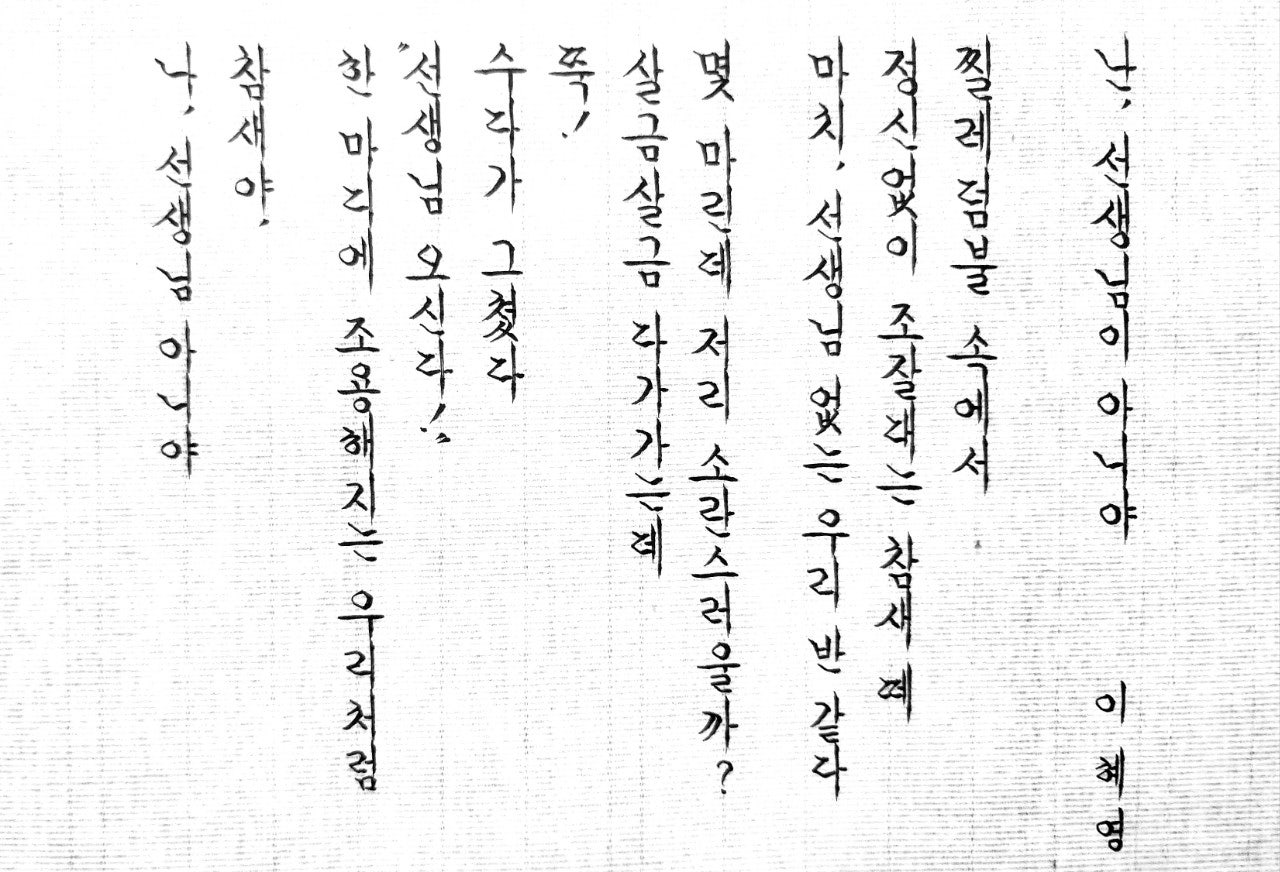 난, 선생님이 아니야 이혜영
찔레덤불 속에서
정신없이 조잘대는 참새 떼
마치, 선생님 없는 우리 반 같다
몇 마린데 저리 소란스러울까?
살금살금 다가가는데
뚝!
수다가 그쳤다
"선생님 오신다!"
한 마디에 조용해지는 우리처럼
참새야,
나, 선생님 아니야